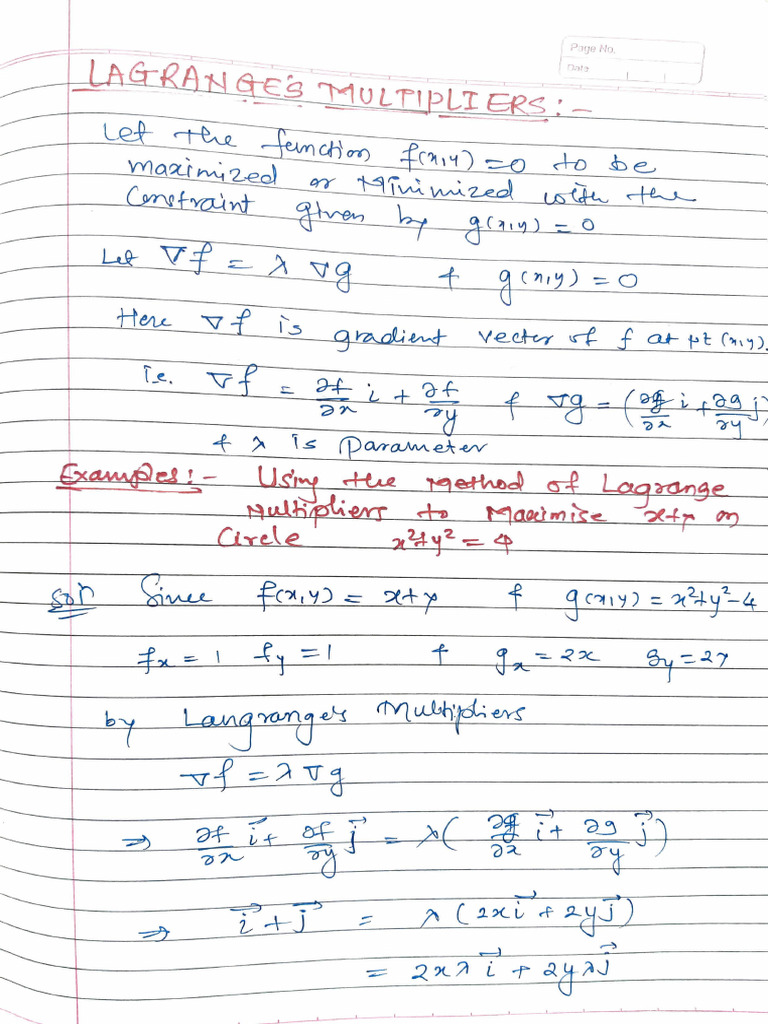 Page No.
Date
LAGRANGE'S MULTIPLIERS :-
Let the function f(x,y)=0 to be
maximized or Minimized with the
Constraint given by g(x,y) = 0
Let ∇f = λ ∇g & g(x,y) = 0
Here ∇f is gradient vector of f at pt (x,y).
i.e. ∇f = ∂f/∂x i + ∂f/∂y & ∇g = (∂g/∂x i + ∂g/∂y j)
& λ is parameter
Examples :- Using the method of Lagrange
Multipliers to Maximise x+y on
Circle x²+y² = 4
Solⁿ Since f(x,y) = x+y & g(x,y) = x²+y²-4
fx = 1 fy = 1 & gx = 2x gy = 2y
by Langrange's Multipliers
∇f = λ ∇g
⇒ ∂f/∂x i⃗ + ∂f/∂y j⃗ = λ( ∂g/∂x i⃗ + ∂g/∂y j⃗ )
⇒ i⃗ + j⃗ = λ (2x i⃗ + 2y j⃗)
= 2xλ i⃗ + 2yλ j⃗